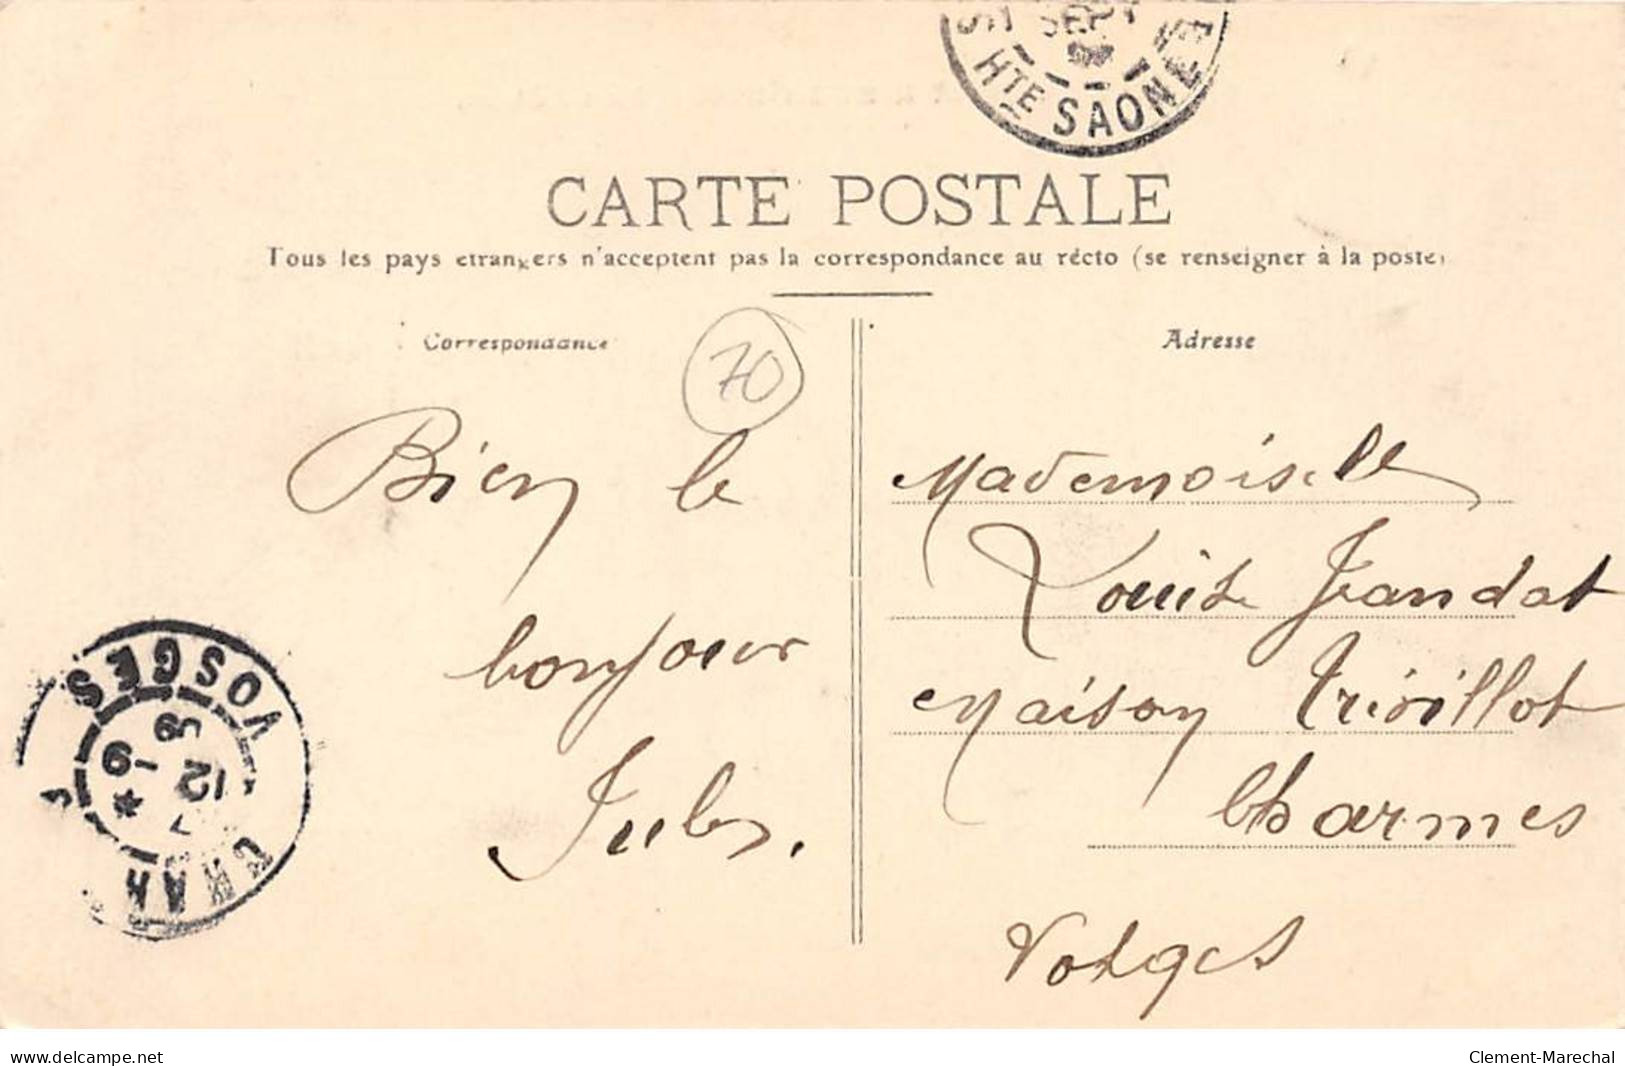 SEPT
HTE SAONE
CARTE POSTALE
Tous les pays etrangers n'acceptent pas la correspondance au récto (se renseigner à la poste)
Correspondance
Adresse
70
Bien le
bonjour
Jules.
Mademoiselle
Louise Jeandat
Maison Trivillot
Charmes
Vosges
VOSGES
12 -9
09
CHAR
www.delcampe.net
Clement-Marechal